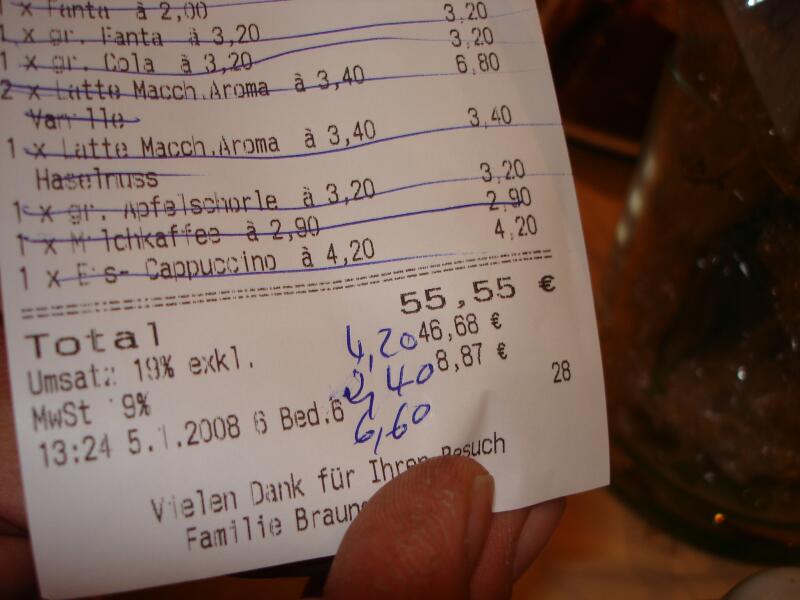 x Fanta à 2,00
1 x gr. Fanta à 3,20 3,20
1 x gr. Cola à 3,20 3,20
2 x Latte Macch.Aroma à 3,40 6,80
Vanille
1 x Latte Macch.Aroma à 3,40 3,40
Haselnuss
1 x gr. Apfelschorle à 3,20 3,20
1 x Milchkaffee à 2,90 2,90
1 x Eis- Cappuccino à 4,20 4,20
Total 55,55 €
Umsatz 19% exkl. 46,68 €
MwSt 19% 8,87 €
13:24 5.1.2008 6 Bed.6 28
4,20
2,40
6,60
Vielen Dank für Ihren Besuch
Familie